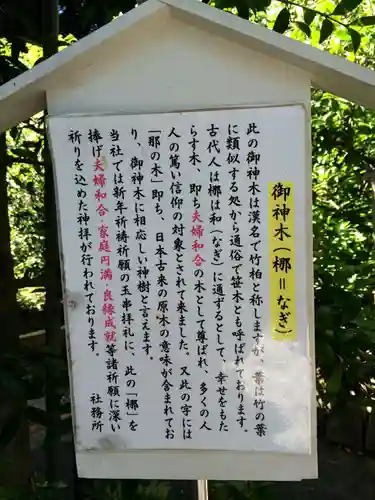 御神木(梛＝なぎ)
此の御神木は漢名で竹柏と称しますが、葉は竹の葉
に類似する処から通俗で笹木とも呼ばれております。
古代人は梛は和(なぎ)に通ずるとして、幸せをもた
らす木、即ち夫婦和合の木として尊ばれ、多くの人
人の篤い信仰の対象とされて来ました。又此の字には
「那の木」即ち、日本古来の原木の意味が含まれてお
り、御神木に相応しい神樹と言えます。
当社では新年祈祷祈願の玉串拝礼に、此の「梛」を
捧げ夫婦和合・家庭円満・良縁成就等諸祈願に深い
祈りを込めた神拝が行われております。
社務所